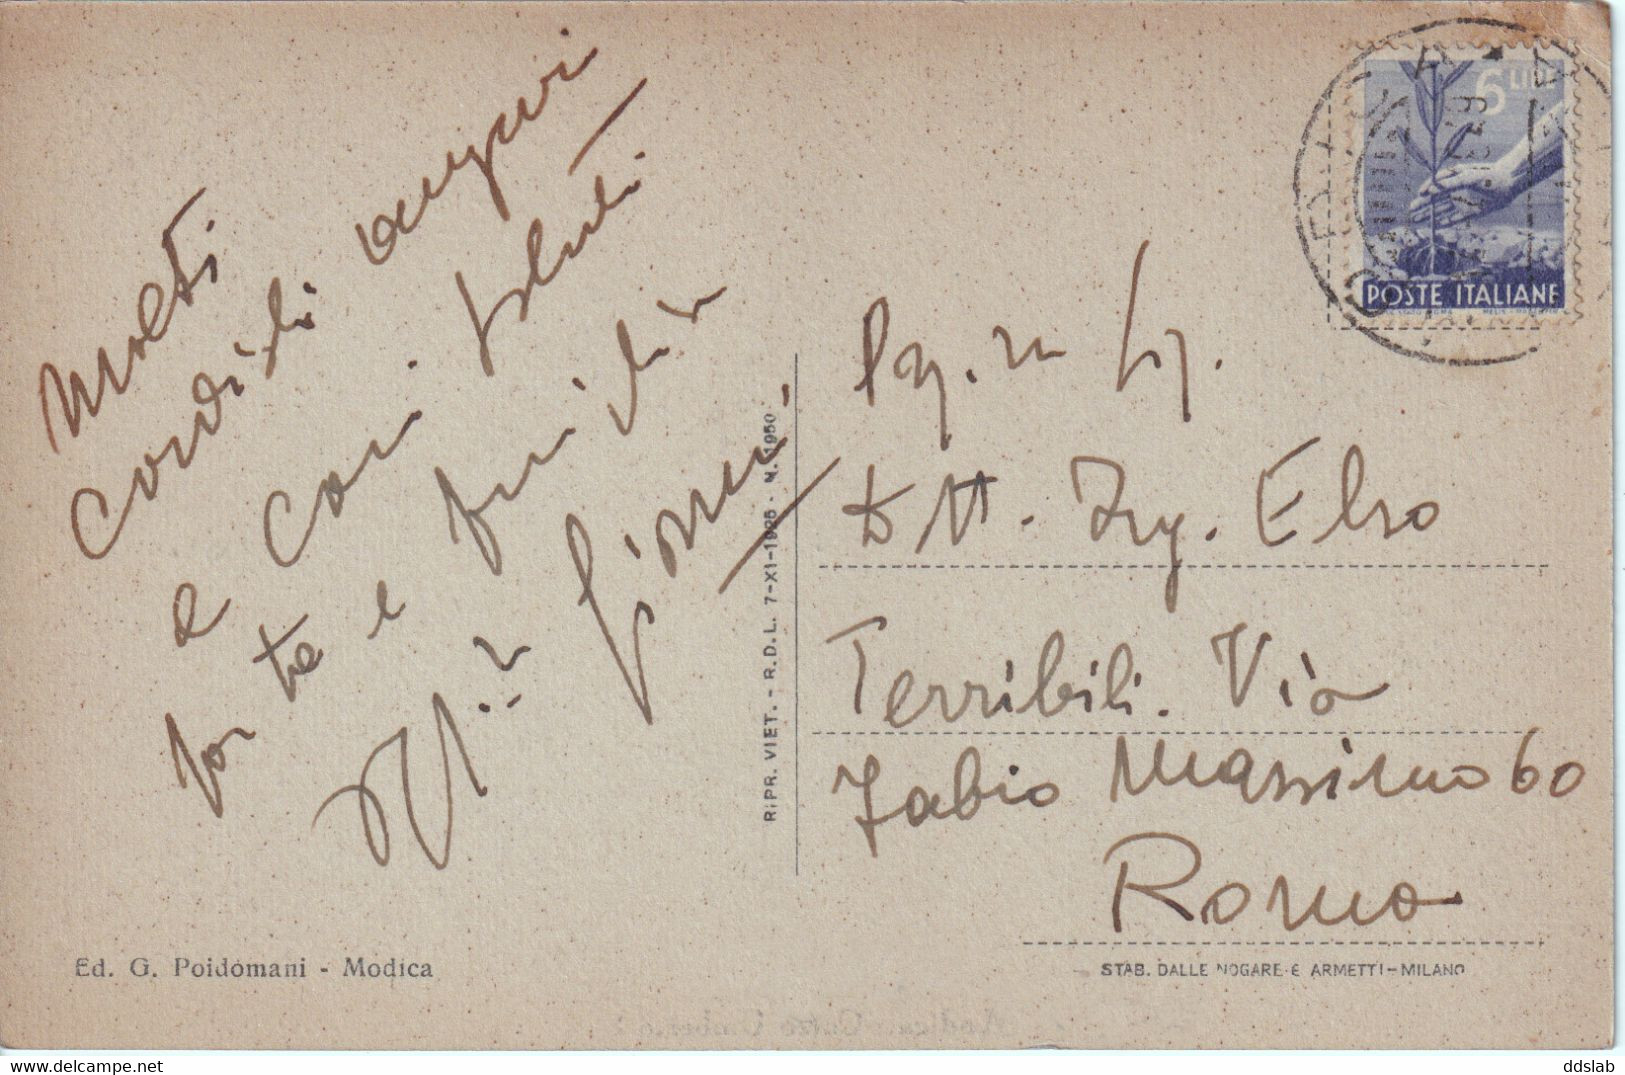 Molti
cordiali auguri
e cari saluti
per te e famiglia
6 LIRE
POSTE ITALIANE
Dott. Ing. Elso
Terribili. Via
Fabio Massimo 60
Roma
RIPR. VIET. - R.D.L. 7-XI-1925 - N. 1950
Ed. G. Poidomani - Modica
STAB. DALLE NOGARE E ARMETTI - MILANO
www.delcampe.net
ddslab